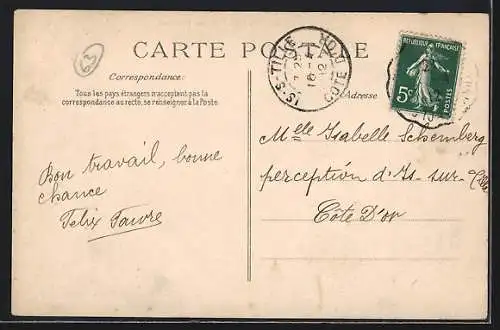 63
CARTE POSTALE
Correspondance:
Tous les pays étrangers n'acceptant pas la
correspondance au recto, se renseigner à la Poste.
Adresse
IS-S-TILLE
COTE D'OR
REPUBLIQUE FRANÇAISE
5c
POSTES
Bon travail, bonne
chance
Felix Favre
Melle Isabelle Schemberg
perception d'Is-sur-Tille
Côte D'or